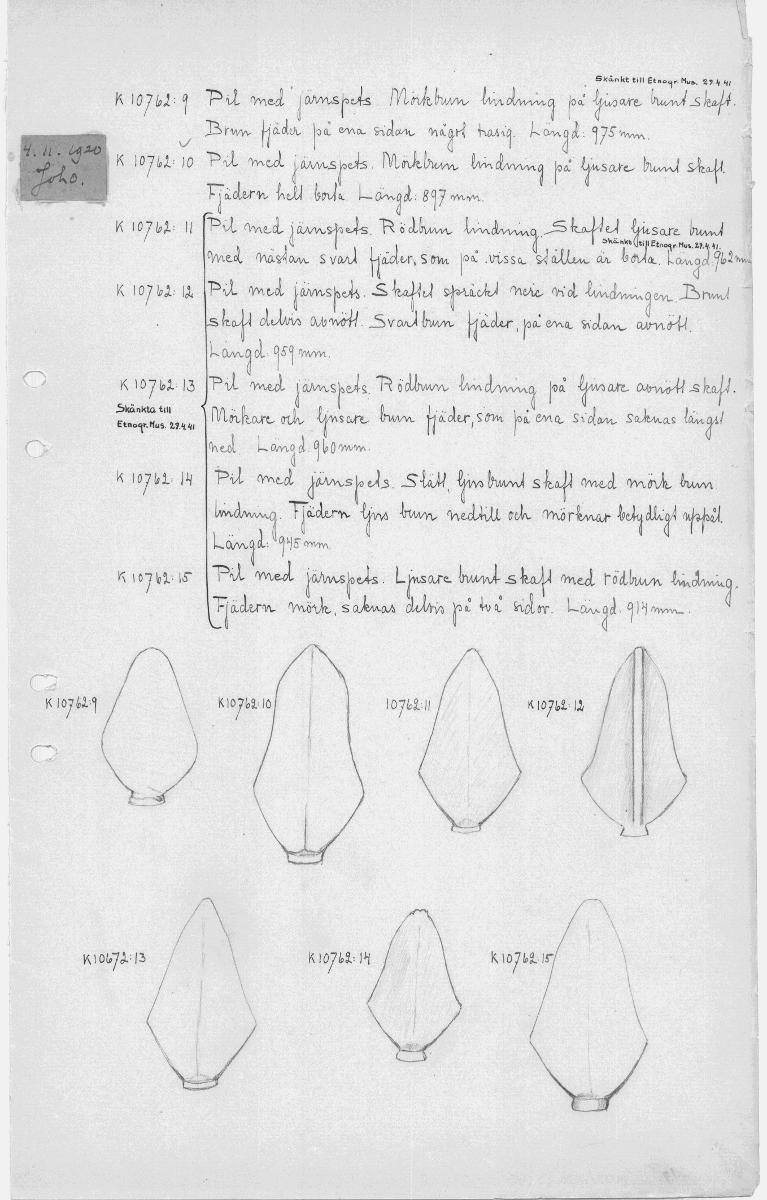 Skänkt till Etnogr. Mus. 29.4.41
K 10762:9 Pil med järnspets. Mörkbrun lindning på ljusare brunt skaft.
Brun fjäder på ena sidan något trasig. Längd: 975 mm.
4. 11. 1920
K 10762:10 Pil med järnspets. Mörkbrun lindning på ljusare brunt skaft.
Fjädern helt borta. Längd: 897 mm.
K 10762:11 Pil med järnspets. Rödbrun lindning. Skaftet ljusare brunt
Skänkt till Etnogr. Mus. 29.4.41.
med nästan svart fjäder, som på vissa ställen är borta. Längd: 962 mm
K 10762:12 Pil med järnspets. Skaftet spräckt nere vid lindningen. Brunt
skaft delvis avnött. Svartbrun fjäder, på ena sidan avnött.
Längd: 959 mm.
K 10762:13 Pil med järnspets. Rödbrun lindning på ljusare avnött skaft.
Skänkta till
Etnogr. Mus. 29.4.41
Mörkare och ljusare brun fjäder, som på ena sidan saknas längst
ned Längd: 960 mm.
K 10762:14 Pil med järnspets. Slätt, ljusbrunt skaft med mörk brun
lindning. Fjädern ljus brun nedtill och mörknar betydligt uppåt.
Längd: 945 mm
K 10762:15 Pil med järnspets. Ljusare brunt skaft med rödbrun lindning.
Fjädern mörk, saknas delvis på två sidor. Längd: 914 mm.
K10762:9 K10762:10 10762:11 K10762:12
K10672:13 K10762:14 K10762:15